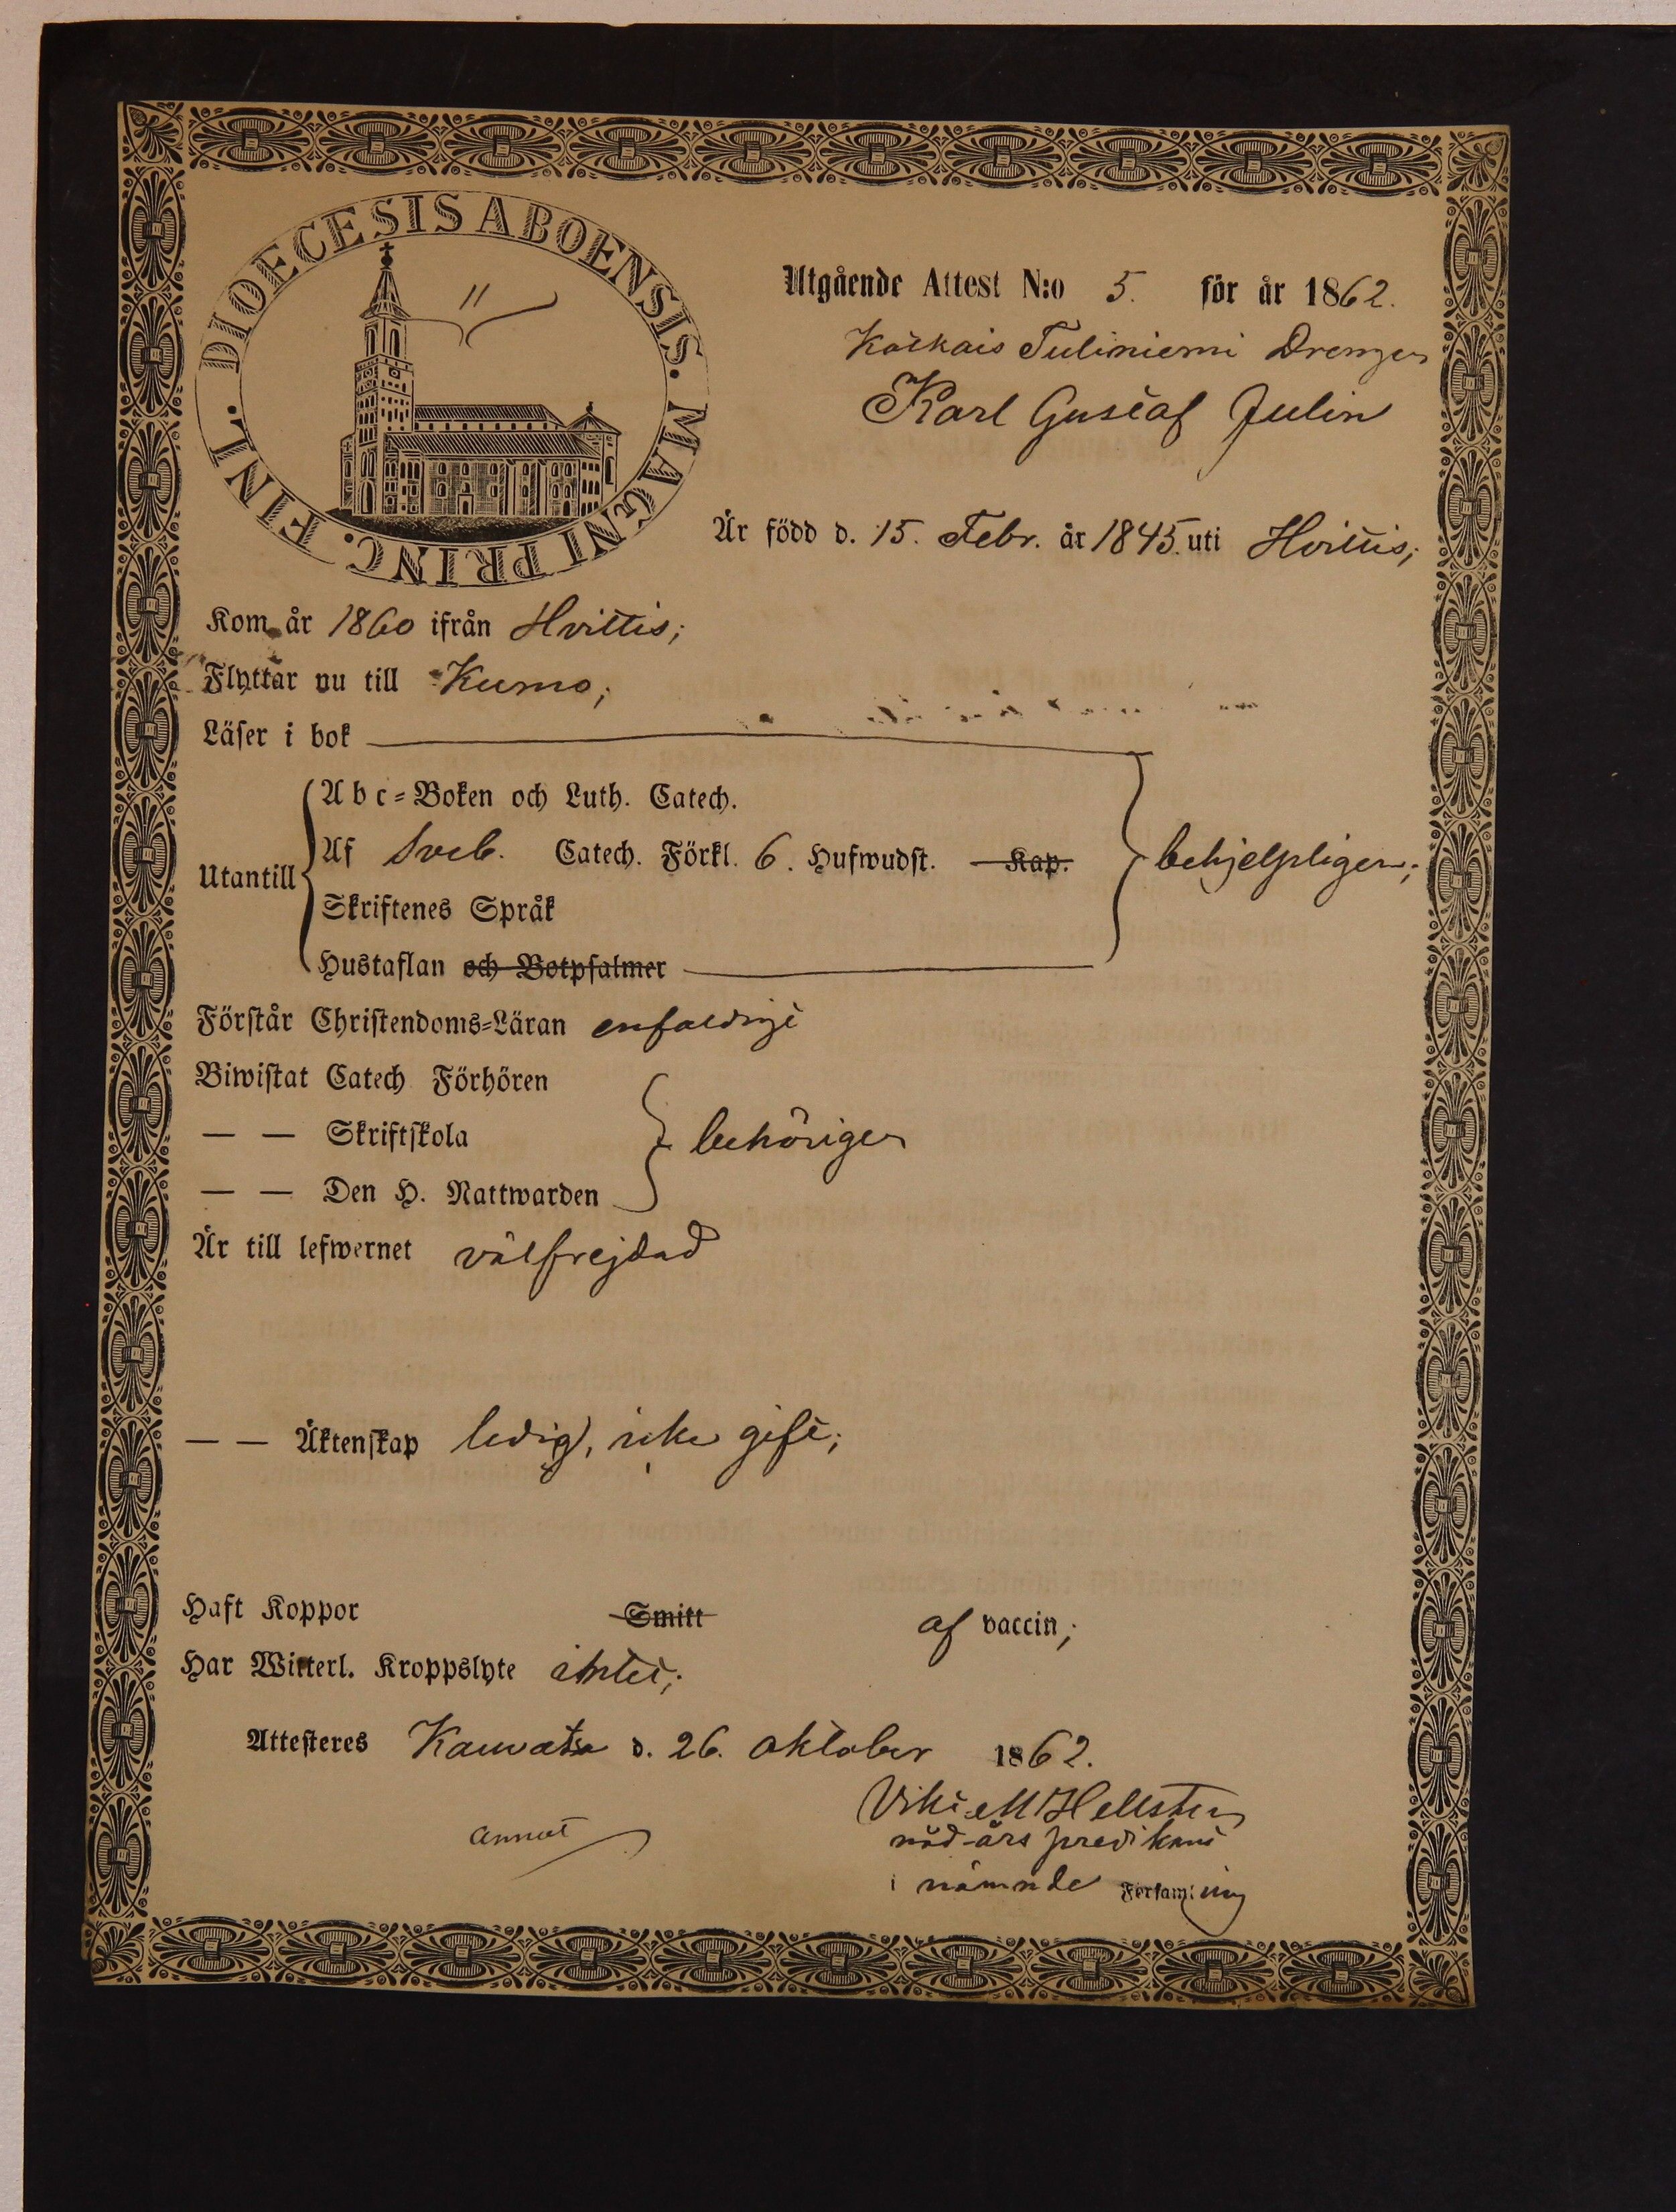 DIOECESIS ABOENSIS. MAGNI PRINC. FINL.
11
Utgående Attest N:o 5. för år 1862.
Tuliniemi Drengen
Karl Gustaf Julin
Är född d. 15. Febr. år 1845. uti Hvittis;
Kom år 1860 ifrån Hvittis;
Flyttar nu till Kumo;
Läser i bok
Abc=Boken och Luth. Catech.
Utantill Af Sveb. Catech. Förkl. 6. Hufwudst. Kap. behjelpligen;
Skriftenes Språk
Hustaflan och Botpsalmer
Förstår Christendoms=Läran enfaldigt
Biwistat Catech Förhören
— — Skriftskola behörigen
— — Den H. Nattwarden
Är till lefwernet välfrejdad
— — Äktenskap ledig, icke gift;
Haft Koppor Smitt af vaccin;
Har Witterl. Kroppslyte intet;
Attesteres Kauvatsa d. 26. oktober 1862.
M Hellsten
annot
nöd-års predikant
i nämnde Församling